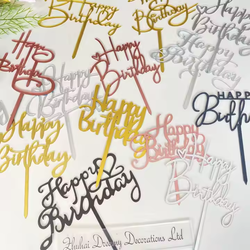 Happy
Birthday
Happy
Birthday
Happy
Birthday
Happy
Birthday
Happy
Birthday
HAPPY
Birthday
Happy
Birthday
Happy
Birthday
Happy
Birthday
Happy
Birthday
Happy
Birthday
Zhuhai Dreamy Decorations Ltd